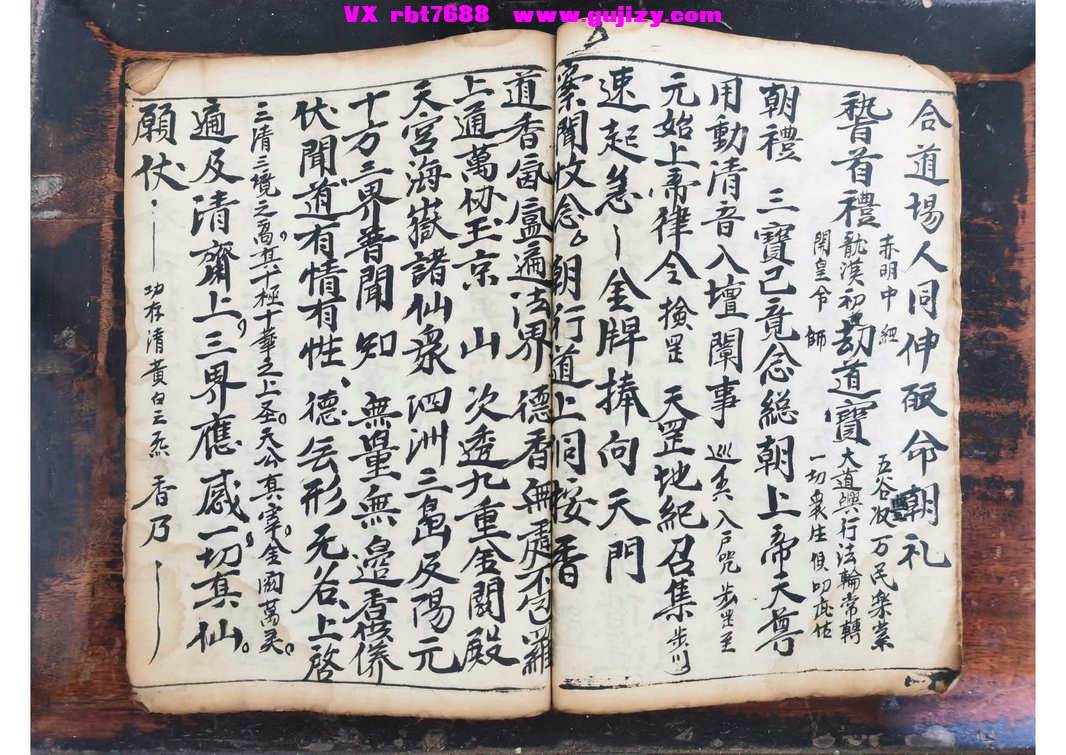 VX rbt7688 www.gujizy.com
合道場人同伸皈命朝礼
稽首禮
赤明中
龍漢初劫道寶
開皇令
經
師
五谷收万民樂業
大道興行法輪常轉
一切衆生俱叨庇佑
朝禮 三寶已竟念總朝上帝天尊
用動清音入壇闡事 巡香入戸咒步罡至
元始上帝律令撿罡 天罡地紀召集 步川
速起急 金牌捧向天門
案聞收念 朝行道上同接香
道香氤氳遍法界 德香無處不包羅
上通萬劫玉京山 次透九重金闕殿
天宮海嶽諸仙衆 四洲三島及陽元
十方三界普聞知 無量無邊香供養
伏聞道有情有性 德無形无名上啓
三清三境之高真十極十華之上圣天公真宰金闕萬灵
遍及清齋上三界應感一切真仙
願伏 功存清黃白三炁 香乃